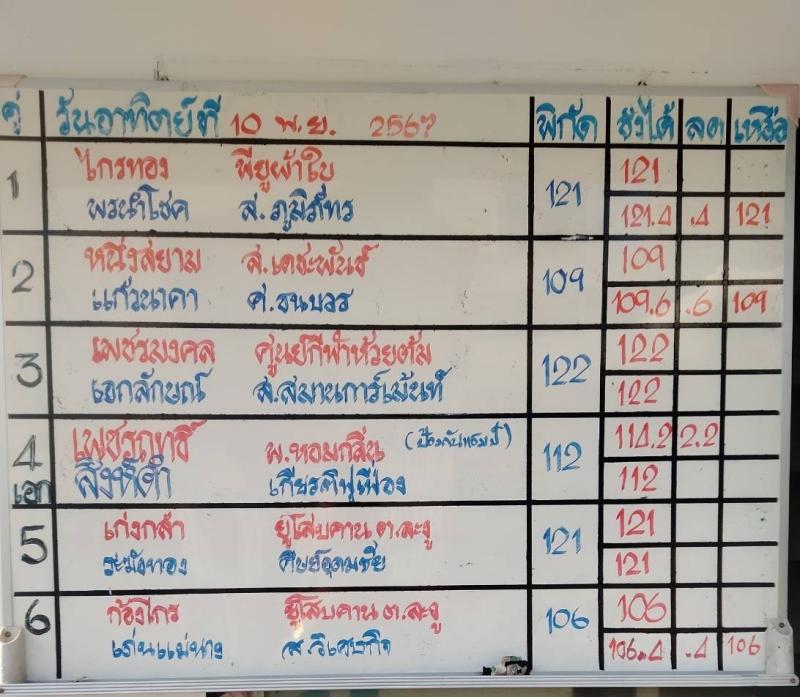 คู่ วันอาทิตย์ที่ 10 พ.ย. 2567 พิกัด ชั่งได้ ลด เหลือ
1 ไกรทอง พียูผ้าใบ 121 121
พรนำโชค ส.ภูมิภัทร 121.4 .4 121
2 หนึ่งสยาม ส.เดชะพันธ์ 109 109
แก้วนาคา ศ.ธนบวร 109.6 .6 109
3 เพชรมงคล ศูนย์กีฬาห้วยต้ม 122 122
เอกลักษณ์ ส.สมานการ์เม้นท์ 122
4 เพชรฤทธิ์ พ.หอมกลิ่น 112 114.2 2.2
เอก สิงห์ดำ เกียรติฟูเฟื่อง 112
5 เก่งกล้า ยูโสบคาน ต.ละงู 121 121
ระฆังทอง ศิษย์อุดมชัย 121
6 ก้องไกร ยูโสบคาน ต.ละงู 106 106
เด่นแม่นาง ส.วิเศษกิจ 106.4 .4 106